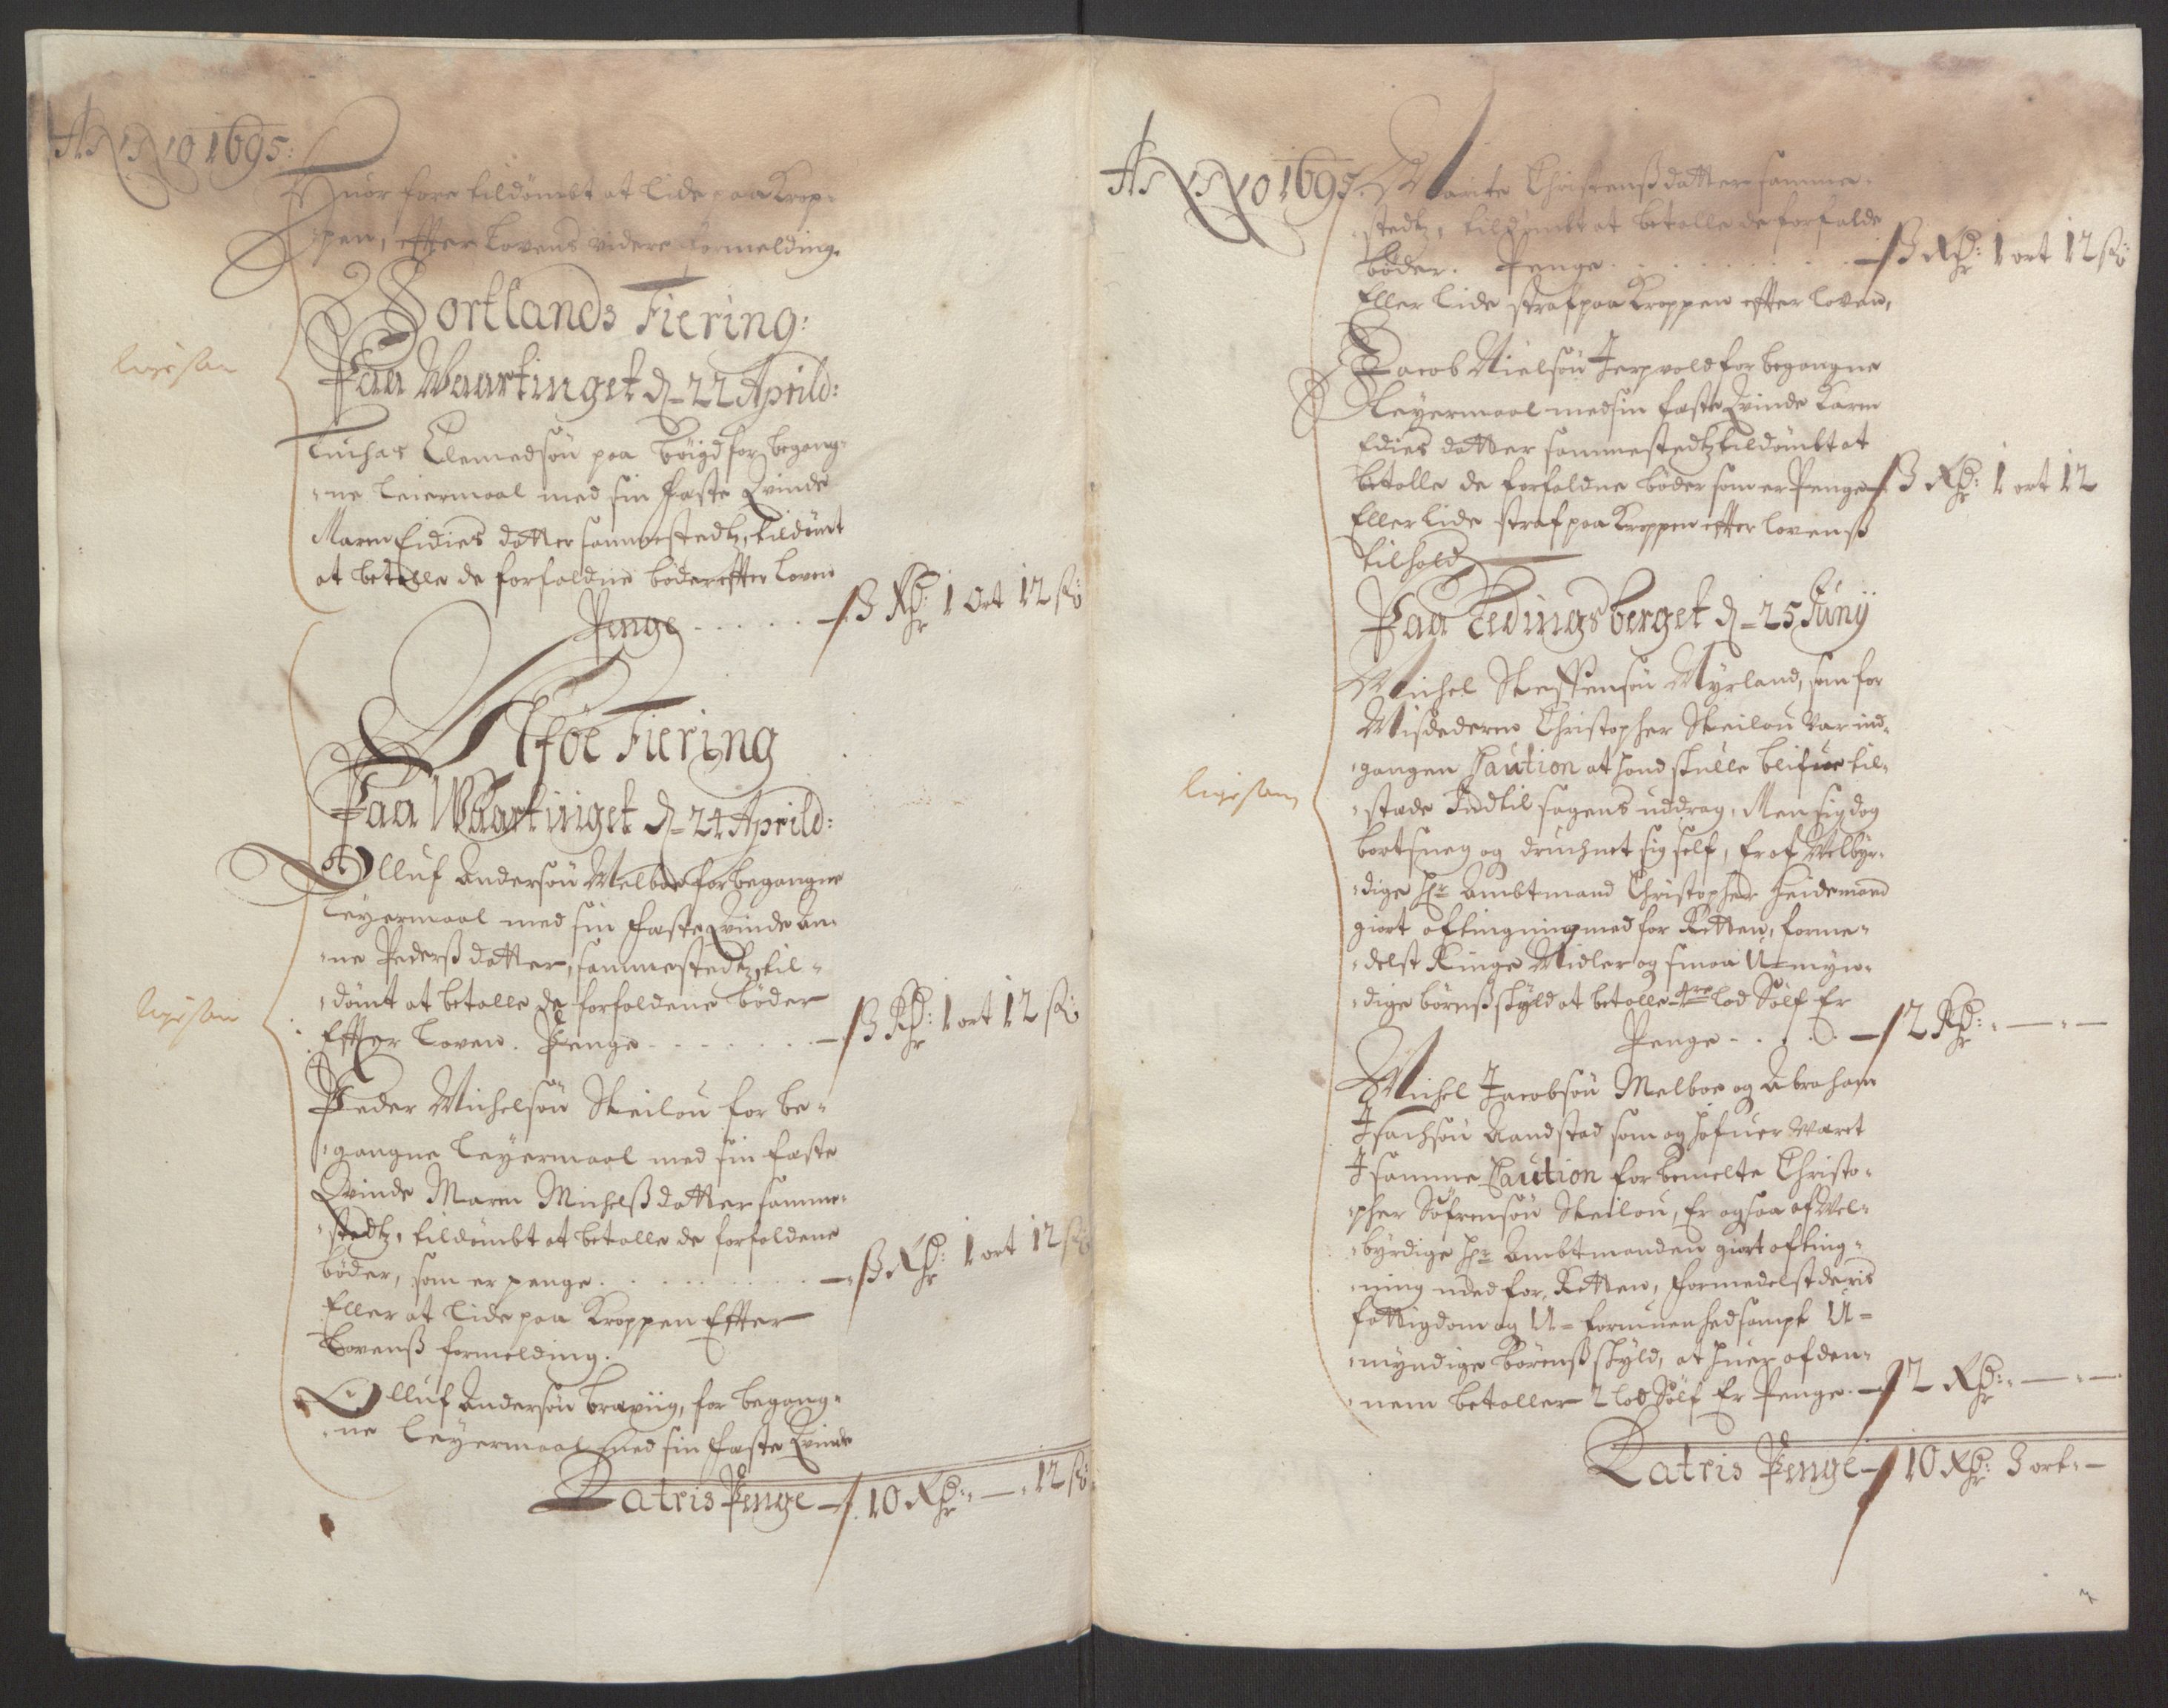 Anno 1695:
Huor fore tildömbt at lide paa Krop¬
pen, effter Lovens videre formelding.
Sortlands Fiering:
Paa Waartinget d. 22 Aprild:
ligesaa
Luchas Clemedsön paa Böigd for begang¬
ne leiermaal med sin Fæste Qvinde
Maren Eidies datter sammestedtz, tildömt
at betalle de forfaldne böder effter loven
Penge - - - - - 3 Rdr: 1 Ort 12 s:
Ulföe Fiering
Paa Waartinget d. 24 Aprild:
Olluf Andersön Melboe for begangne
leyermaal med sin Fæste Qvinde An¬
ne Pederss datter, sammestedtz, til¬
dömt at betalle de forfaldene böder
ligesaa
Effter loven. Penge - - - - - 3 Rdr: 1 ort 12 s:
Peder Michelsön Skeilou for be¬
gangne leyermaal med sin fæste
Qvinde Maren Michelss datter samme¬
stedtz, tildömbt at betalle de forfaldene
böder, som er penge - - - - - 3 Rdr: 1 ort 12 s:
Eller at lide paa Kroppen Effter
Lovenss formelding.
Olluf Andersön for begang¬
ne leyermaal med sin Fæste Qvinde
Latris Penge - 10 Rdr: - 12 s:
Anno 1695:
Marite Christenss datter samme¬
stedtz, tildömbt at betalle de forfalde
böder. Penge - - - - - 3 Rdr: 1 ort 12 s:
Eller lide straf paa Kroppen effter loven,
Jacob Nielsön Jerpvold for begangne
Leyermaal med sin fæste Qvinde Karen
Edies datter sammestedtz tildömbt at
betalle de forfaldne böder som er Penge 3 Rdr: 1 ort 12
Eller lide straf paa Kroppen effter lovenss
tilhold
Paa Tedingsberget d. 25 Juny
Michel Steffensön Myrland, som for
Misdederen Christopher Skeilou var ind¬
gangen Caution at hand skulle blifue til¬
ligesaa
stæde Indtil sagens uddrag, Men sig dog
bortsneg og druchnet sig self, Er af Velbyr¬
dige Hr Ambtmand Christopher Heidemand
giort aftingning med for Retten, forme¬
delst Ringe Midler og smaa U-myn¬
dige börnss skyld at betalle 4re lod Sölf Er
Penge - - - - - 2 Rdr: - -
Michel Jacobsön Melboe og Abraham
Isachsön Aandstad som og hafuer waret
I samme Caution for bemelte Christo¬
pher Söfrensön Skeilou, Er ogsaa af Vel¬
byrdige Hr Ambtmanden giort afting¬
ning med for Retten, formedelst deris
fattigdom og U-formuenhed sampt U-
myndige Börenss skyld, at huer af den¬
nem betaller 2 lod Sölf Er Penge. - 2 Rdr: - -
Latris Penge - 10 Rdr: 3 ort -